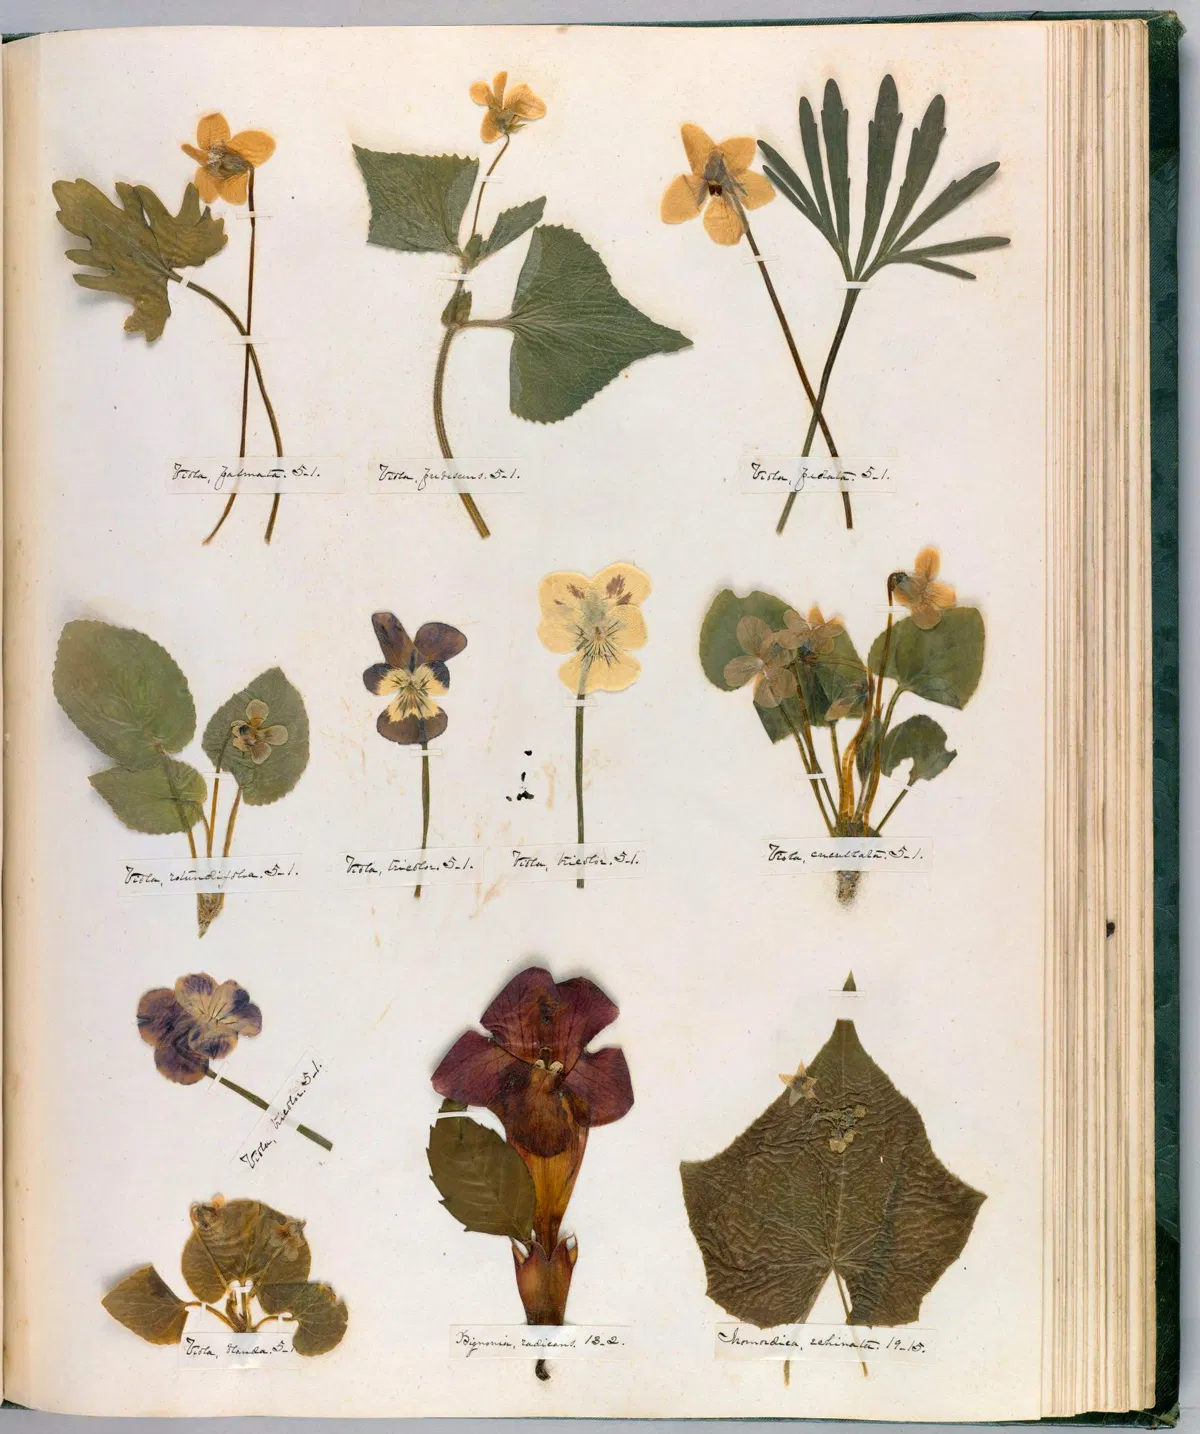 Viola, palmata. 5-1.
Viola, pubescens. 5-1.
Viola, pedata. 5-1.
Viola, rotundifolia. 5-1.
Viola, tricolor. 5-1.
Viola, tricolor. 5-1.
Viola, cucullata. 5-1.
Viola, tricolor. 5-1.
Viola, blanda. 5-1
Bignonia, radicans. 13-2.
Momordica, echinata. 19-15.